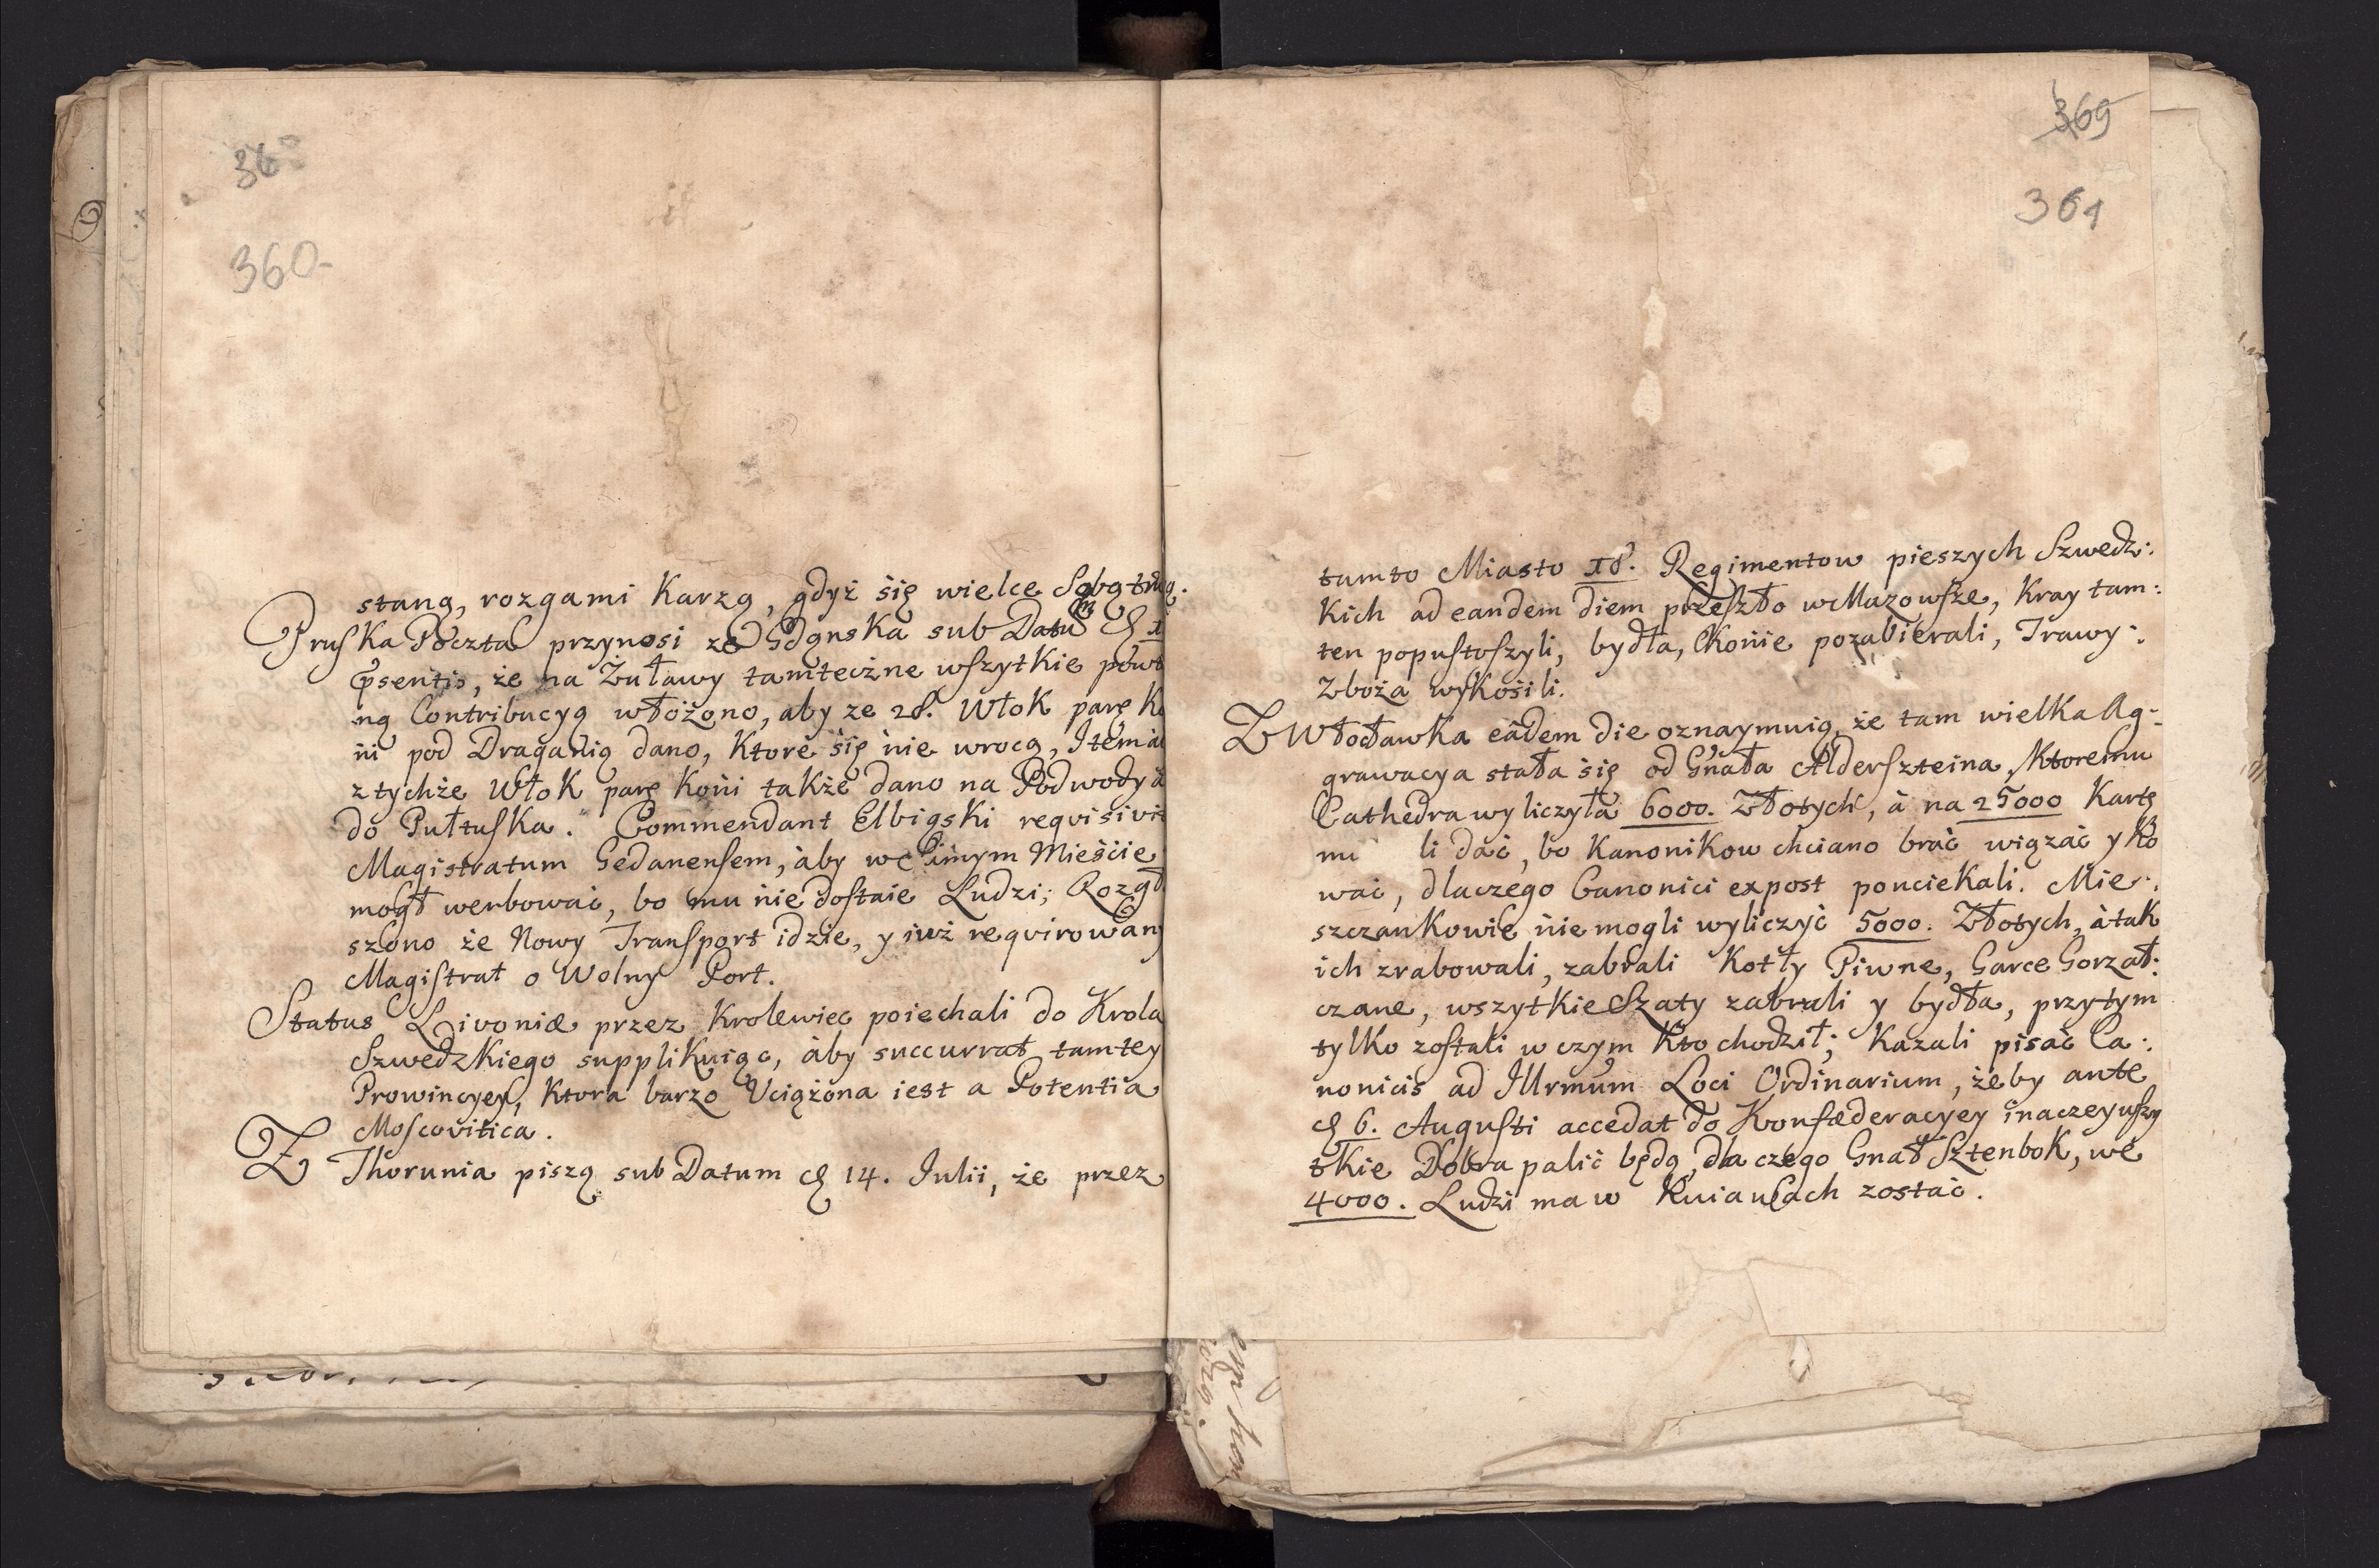 360
360-
stang, rozgami Karzą, gdyż się wielce
Pruska Poczta przynosi ze Gdąnska sub Datu
psentis, że na Żuławy tamteczne wszytkie
ną Contribucyą włożono, aby ze 28. Włok parę
ni pod Draganią dano, Ktore się nie wrocą, Item
z tychże Włok parę Koni także dano na Podwody
do Pułtuska. Commendant Elbigski reqvisivit
Magistratum Gedanensem, aby w
mogł werbować, bo mu nie dostaie Ludzi;
szono że Nowy Transport idzie, y iuż reqvirowan
Magistrat o Wolny Port.
Status Livoniæ przez Krolewiec poiechali do Krola
Szwedzkiego supplikuiąc, aby succurrat tamtey
Prowincyey, Ktora barzo Uciążona iest a Potentia
Moscovitica.
Z Thorunia piszą sub Datum 14. Iulii, że przez
369
361
tamto Miasto 18. Regimentow pieszych Szwedz:
Kich ad eandem diem przeszło w Mazowsze, Kray tam:
ten popustoszyli, bydła, Konie pozabierali, Trawy:
Zboża wykosili.
Z Włocławka eâdem die oznaymuią, że tam wielka Ag-
grawacya stała się od Gnała Alderszteina, Ktoremu
Cathedra wyliczyła 6000. Złotych, à na 25000 Kartę
mu li dać, bo Kanonikow chciano brać wiązać y Ko
wać, dlaczego Canonici expost pouciekali. Mie:
szczankowie nie mogli wyliczyć 5000. Złotych, à tak
ich zrabowali, zabrali Kotły Piwne, Garce Gorzał:
czane, wszytkie Szaty zabrali y bydła, przytym
tylko zostali w czym Kto chodził; Kazali pisać Ca:
nonicis ad Illrmum Loci Ordinarium, żeby ante
6. Augusti accedat do Konfæderacyey inaczey wszy
tkie Dobra palić będą, dla czego Gnał Sztenbok, we
4000. Ludzi ma w Kuiawach zostać.